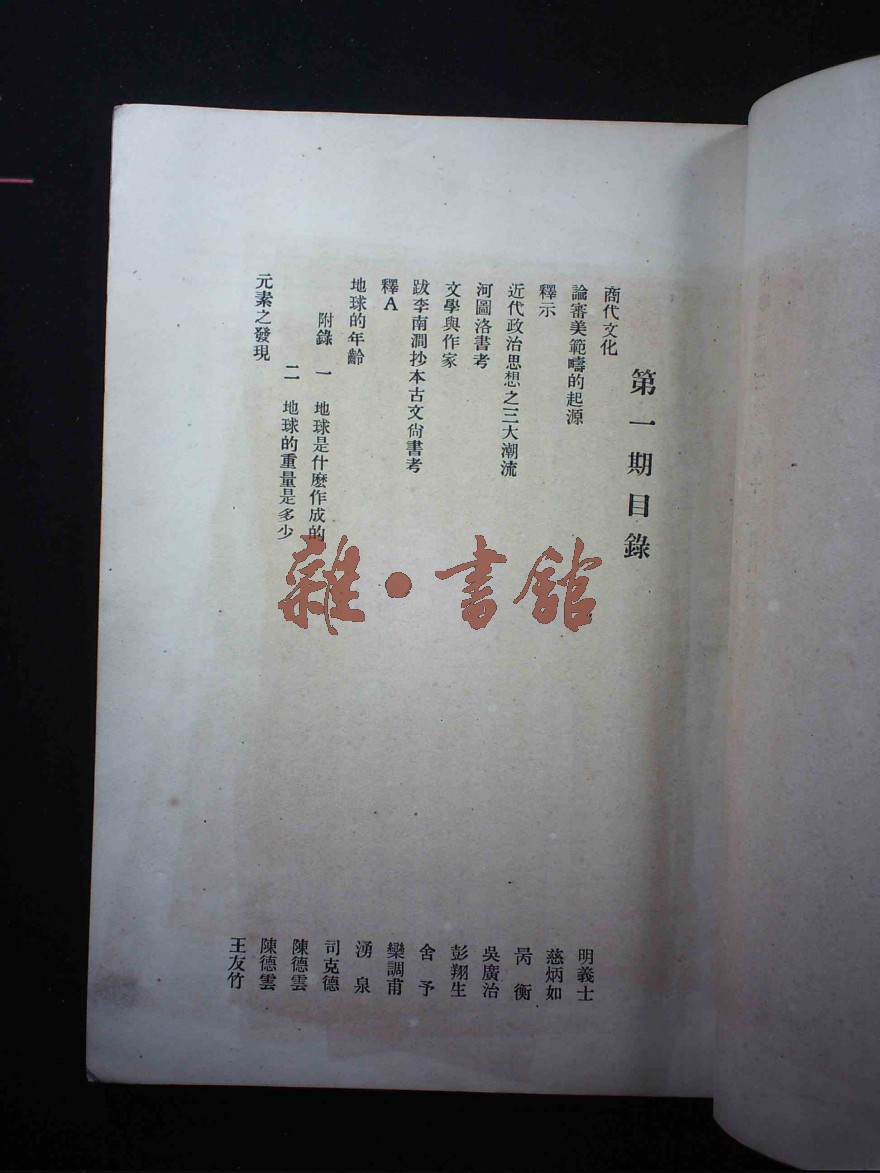 第一期目錄
商代文化 明義士
論審美範疇的起源 慈炳如
釋示 昺衡
近代政治思想之三大潮流 吳廣治
河圖洛書考 彭翔生
文學與作家 舍予
跋李南澗抄本古文尙書考 欒調甫
釋A 湧泉
地球的年齡 司克德
附錄 一 地球是什麽作成的 陳德雲
二 地球的重量是多少 陳德雲
元素之發現 王友竹
雜·書館